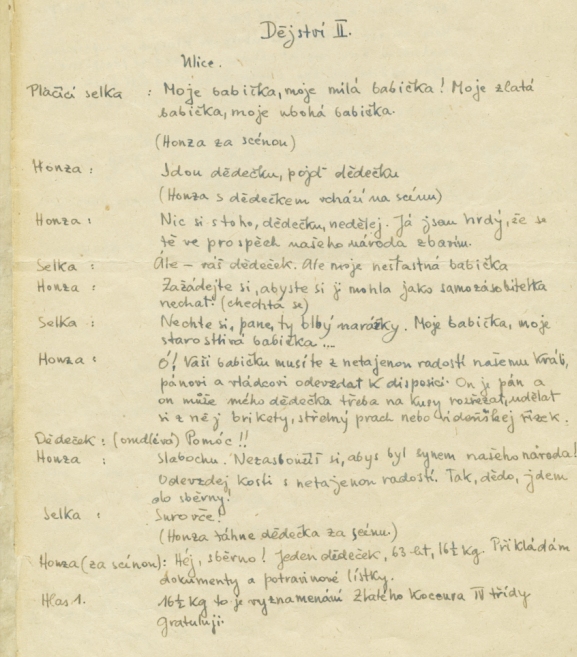 Dějství II.
Ulice.
Plačící selka : Moje babička, moje milá babička! Moje zlatá
babička, moje ubohá babička.
(Honza za scénou)
Honza : Jdou dědečku, pojď dědečku
(Honza s dědečkem vchází na scénu)
Honza : Nic si s toho, dědečku, nedělej. Já jsem hrdý, že se
tě ve prospěch našeho národa zbavím.
Selka : Ále – váš dědeček. Ale moje nešťastná babička
Honza : Zažádejte si, abyste si ji mohla jako samozásobitelka
nechat. (chechtá se)
Selka : Nechte si, pane, ty blbý narážky. Moje babička, moje
starostlivá babička ...
Honza : Ó! Vaši babičku musíte z netajenou radostí našemu králi,
pánovi a vládcovi odevzdat k disposici. On je pán a
on může mého dědečka třeba na kusy rozřezat, udělat
si z něj brikety, střelný prach nebo vídeňskej řízek.
Dědeček : (omdlévá) Pomóc!!
Honza : Slabochu. Nezasloužíš si, abys byl synem našeho národa!
Odevzdej kosti s netajenou radostí. Tak, dědo, jdem
do sběrny!
Selka : Surovče!
(Honza táhne dědečka za scénu.)
Honza (za scénou) : Héj, sběrno! Jeden dědeček, 63 let, 16½ kg. Přikládám
dokumenty a potravinové lístky.
Hlas 1. 16½ kg to je vyznamenání Zlatého Kocoura IV třídy
Gratuluji.